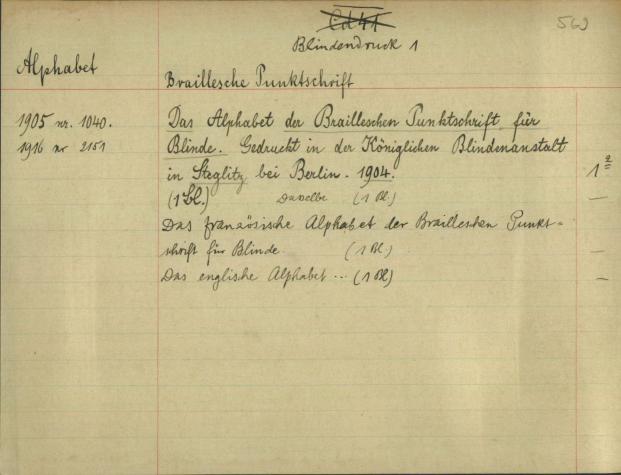 Cd 41
569
Blindendruck 1
Alphabet
Braillesche Punktschrift
1905 nr. 1040.
Das Alphabet der Brailleschen Punktschrift für
1916 nr 2151
Blinde. Gedruckt in der Königlichen Blindenanstalt
in Steglitz bei Berlin. 1904.
1 2
(1 Bl.) Dasselbe (1 Bl.) —
Das französische Alphabet der Brailleschen Punkt=
schrift für Blinde (1 Bl) —
Das englische Alphabet ... (1 Bl) —